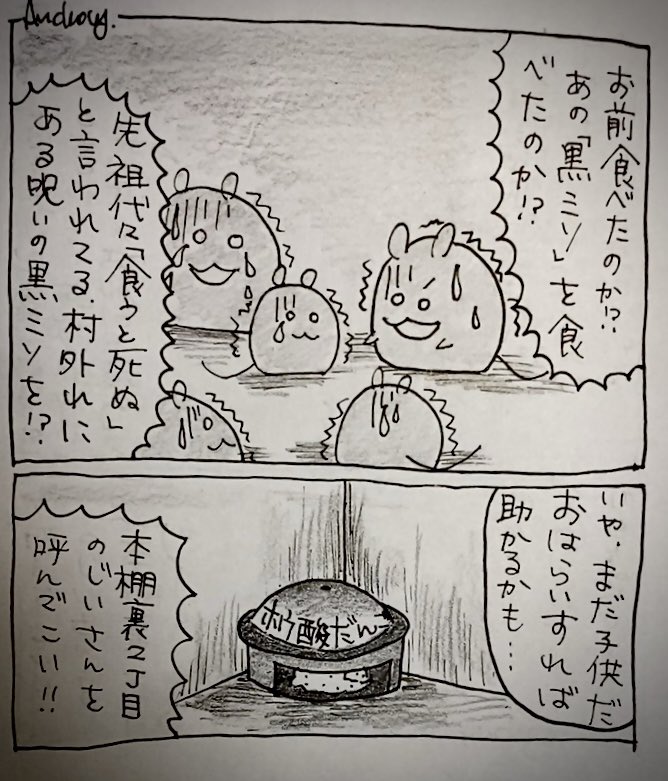 Andrey.
お前食べたのか!?
あの「黒ミソ」を食
べたのか!?
先祖代々「食うと死ぬ」
と言われてる、村外れに
ある呪いの黒ミソを!?
いや、まだ子供だ
おはらいすれば
助かるかも…
ホウ酸だんご
本棚裏2丁目
のじいさんを
呼んでこい!!